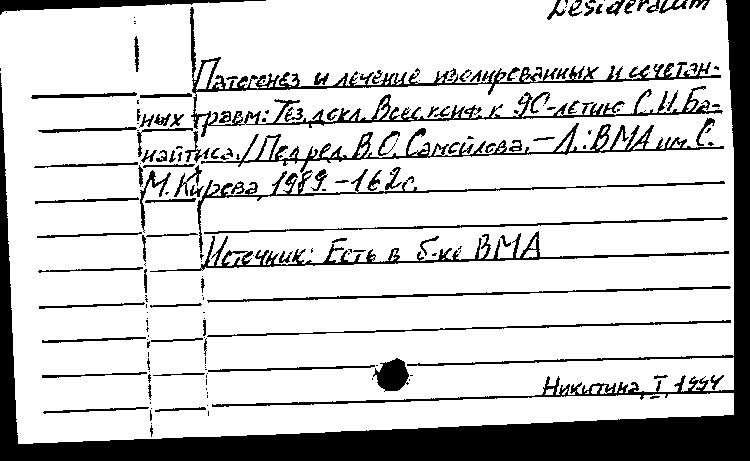 Desideratum
Патогенез и лечение изолированных и сочетан-
ных травм: Тез. докл. Всес. конф. к 90-летию С.И. Ба-
найтиса. / Под ред. В.О. Самойлова. – Л.: ВМА им. С.
М. Кирова, 1989. – 162 с.
Источник: Есть в б-ке ВМА
Никитина, I, 1994